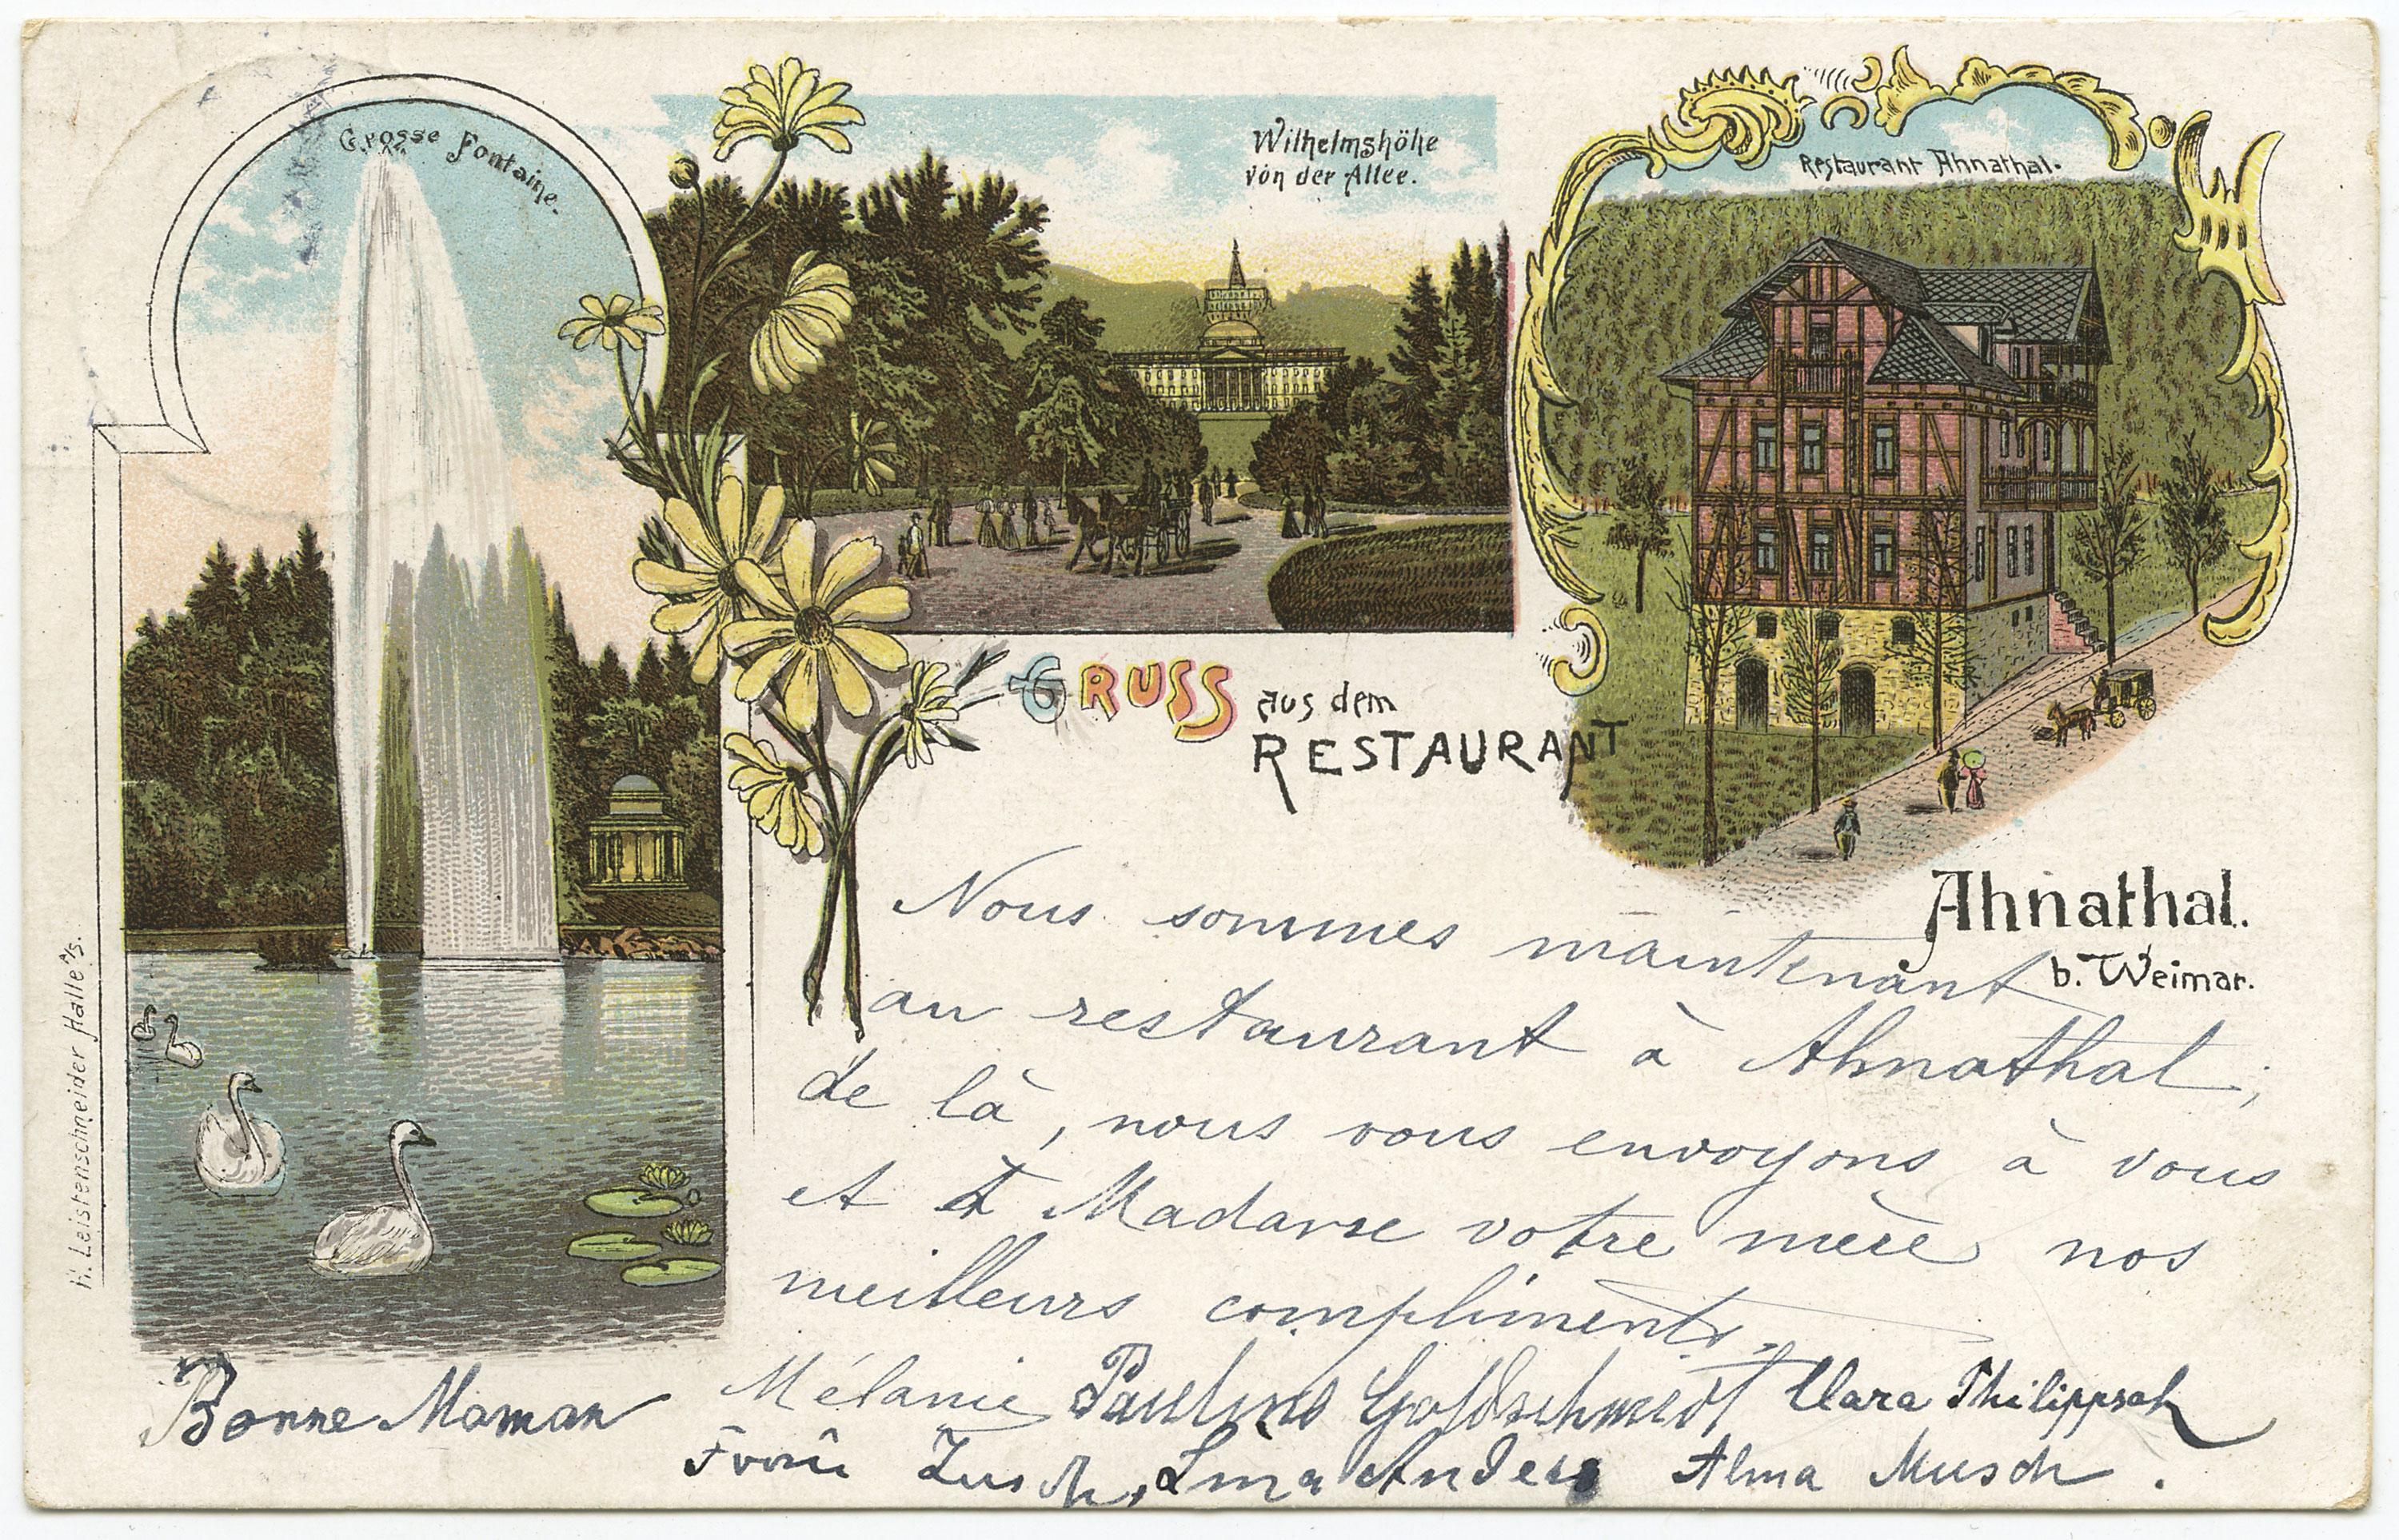 Grosse Fontaine.
Wilhelmshöhe
von der Allee.
Restaurant Ahnathal.
GRUSS aus dem
RESTAURANT
Ahnathal.
b. Weimar.
H. Leistenschneider Halle a/S.
Nous sommes maintenant
au restaurant à Ahnathal,
de là, nous vous envoyons à vous
et à Madame votre mère nos
meilleurs compliments.
Bonne Maman
Mélanie Pauline Goldschmidt Clara Philippsoh
Alma Musch.